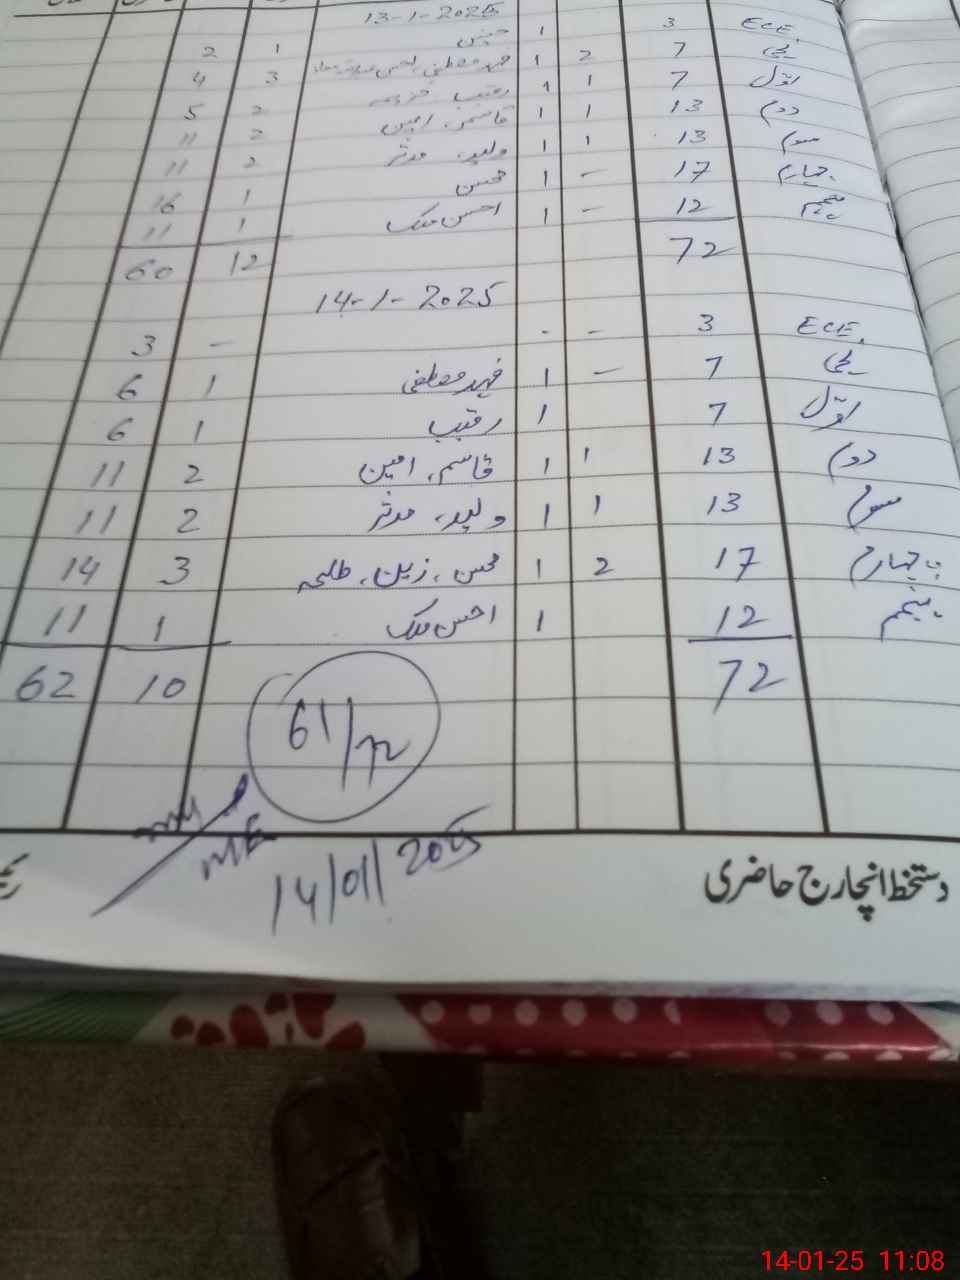 13-1-2025
ECE. 3 1 1 2
کچی 7 2 1 3 4
اوّل 7 1 1 رقیب 2 5
دوم 13 1 1 قاسم، امین 2 11
سوم 13 1 1 ولید، مدثر 2 11
چہارم 17 - 1 محسن 1 16
پنجم 12 - 1 احسن ملک 1 11
72 12 60
14-1-2025
ECE. 3 - - - 3
کچی 7 - 1 فہد مصطفی 1 6
اوّل 7 1 رقیب 1 6
دوم 13 1 1 قاسم، امین 2 11
سوم 13 1 1 ولید، مدثر 2 11
چہارم 17 2 1 محسن، زین، طلحہ 3 14
پنجم 12 1 احسن ملک 1 11
72 10 62
61/72
14/01/2025
دستخط انچارج حاضری
14-01-25 11:08